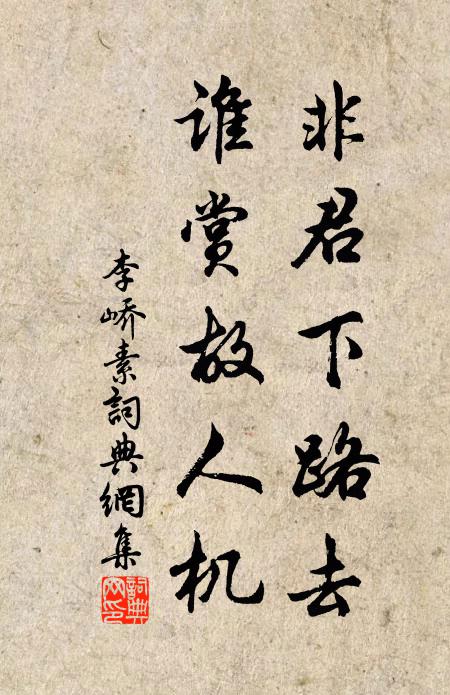 非君下路去
谁赏故人机
李峤素詞典網集
詞典网印